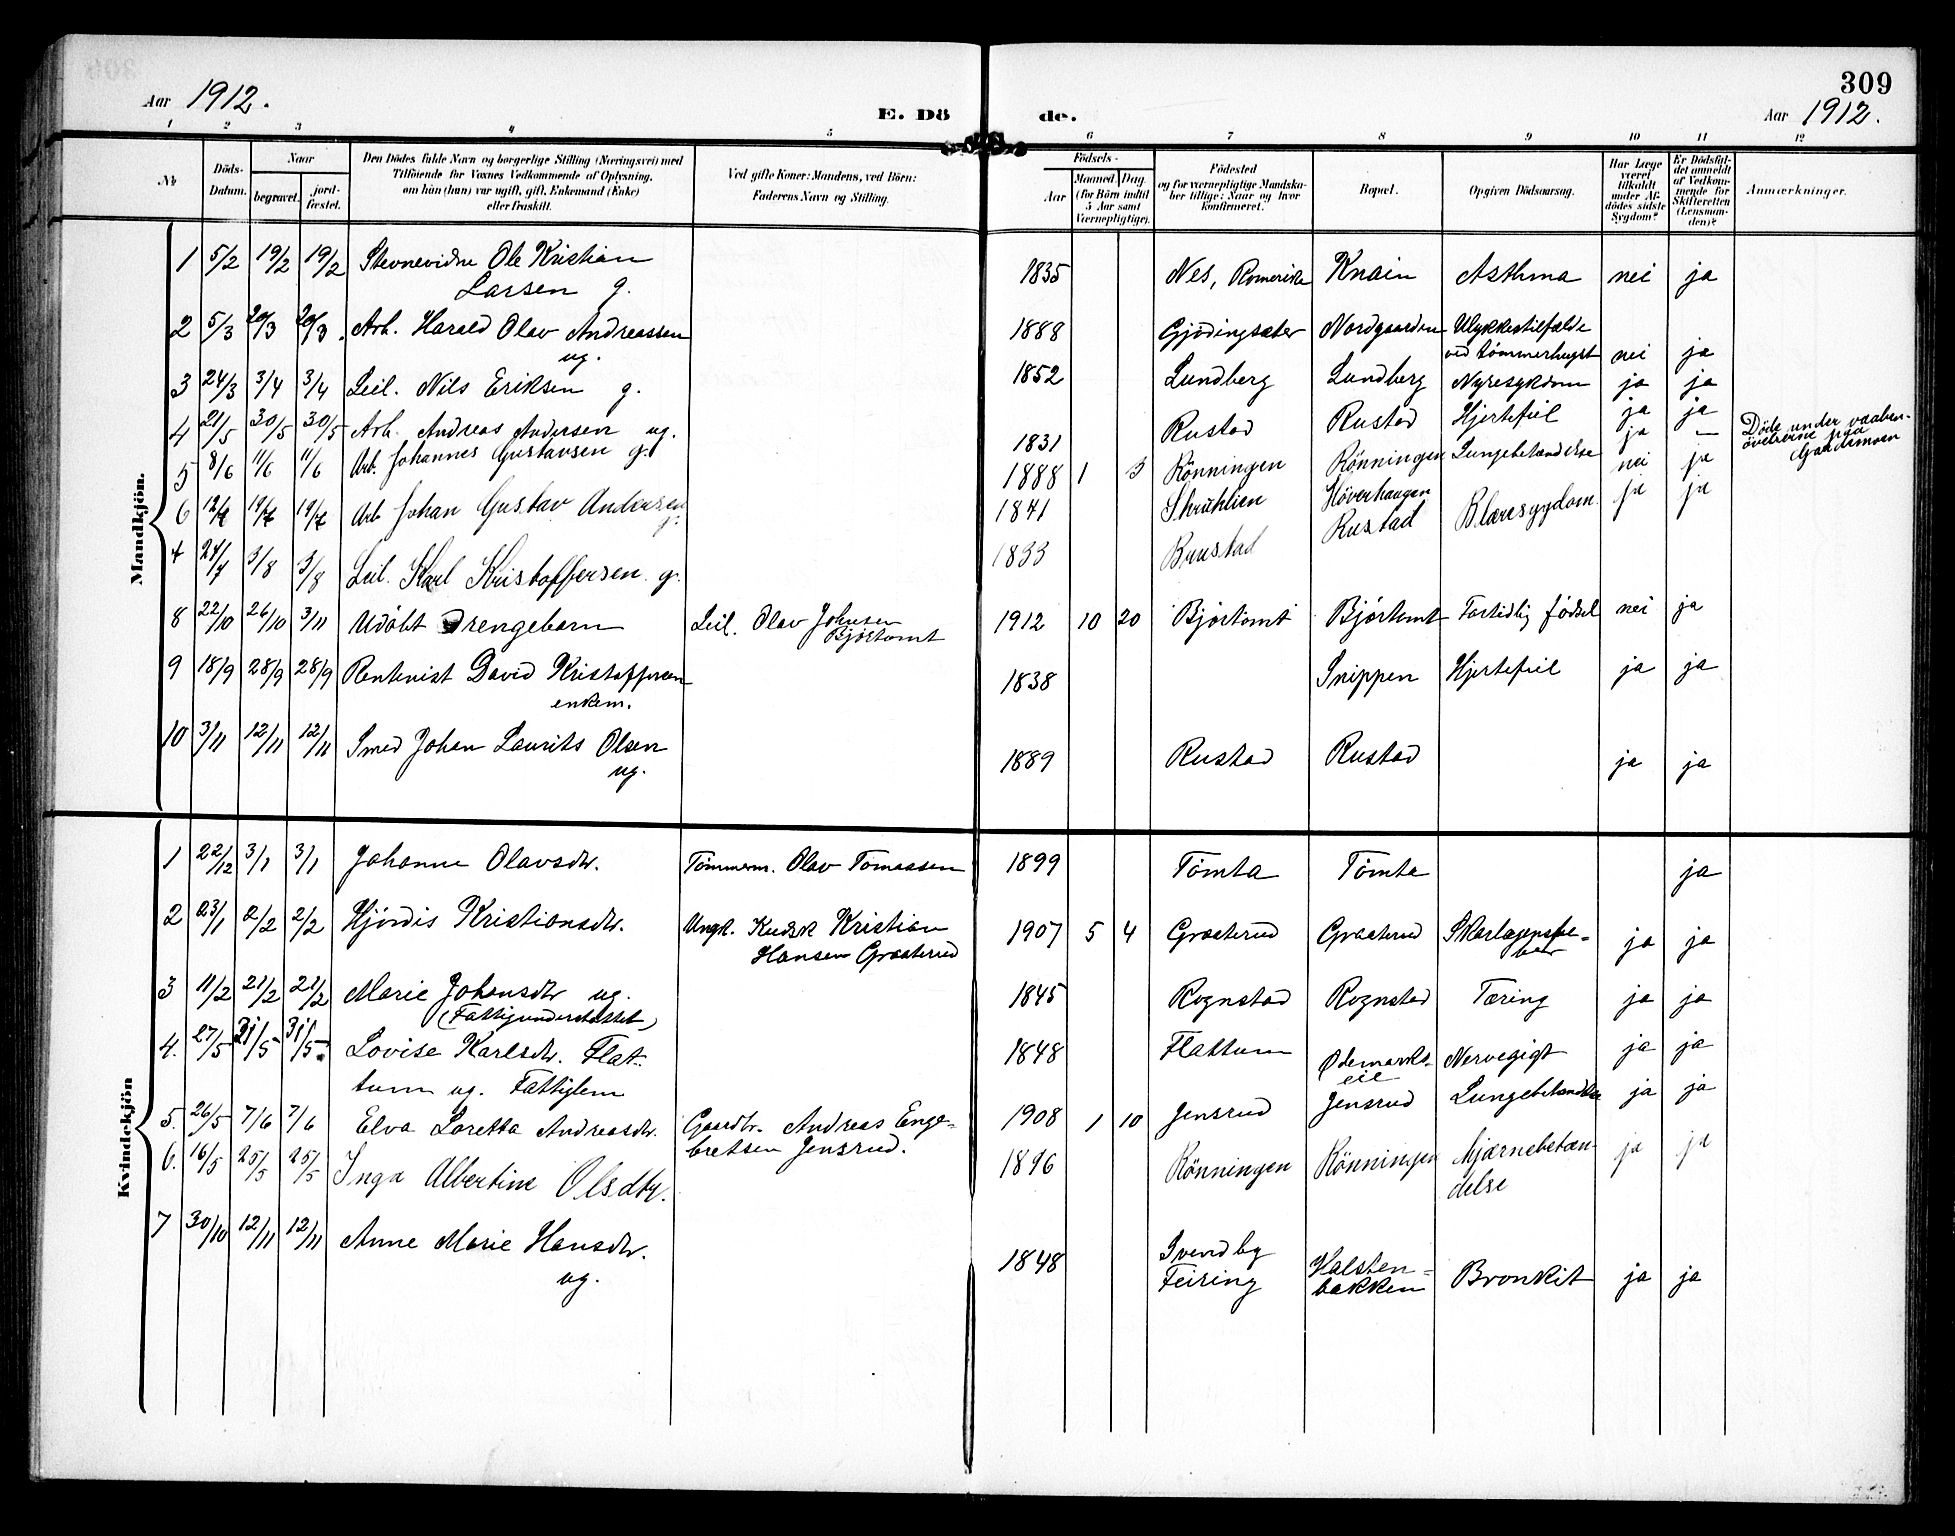 309
Aar 1912.
E. Dö de.
Aar 1912.
1 2 3 4 5 6 7 8 9 10 11 12
No
Döds-Datum.
Naar
begravet.
jord-fæstet.
Den Dödes fulde Navn og borgerlige Stilling (Næringsvei) med
Tilföiende for Voxnes Vedkommende af Oplysning,
om han (hun) var ugift, gift, Enkemand (Enke)
eller fraskilt.
Ved gifte Koner: Mandens, ved Börn:
Faderens Navn og Stilling.
Födsels-
Aar
Maaned. Dag.
(for Börn indtil
5 Aar samt
Værnepligtige).
Födested
og for værnepligtige Mandska-
ber tillige: Naar og hvor
konfirmeret.
Bopæl.
Opgiven Dödsaarsag.
Har Læge
været
tilkaldt
under Af-
dödes sidste
Sygdom?
Er Dödsfal-
det anmeldt
af Vedkom-
mende for
Skifteretten
(Lensman-
den)?
Anmærkninger.
Mandkjön.
1 5/2 19/2 19/2 Stevnevidne Ole Kristian
Larsen g.
1835 Nes, Romerike Knain Asthma nei ja
2 5/3 20/3 20/3. Arb. Harald Olav Andreassen
ug.
1888 Gjødingsæter Nordgaarden Ulykkestilfælde
ved tømmerhugst nei ja
3 24/3 3/4 3/4 Leil. Nils Eriksen g.
1852 Lundberg Lundberg Nyresykdom ja ja
4 21/5 30/5 30/5 Arb. Andreas Andersen ug.
1831 Rustad Rustad Hjertefeil ja ja
5 8/6 11/6 11/6 Arb. Johannes Gustavsen g.
1888 1 3 Rönningen Rönningen Lungebetændelse ja —
Døde under vaaben-
øvelserne paa
Gardemoen
6 12/7 19/7 19/7 Arb Johan Gustav Andersen
g.
1841 Skruklien Höverhaugen nei ja
4 24/7 3/8 3/8 Leil. Karl Kristoffersen g.
1833 Ruustad Rustad Blæresygdom. ja ja
8 22/10 26/10 3/11 Udöbt Drengebarn
Leil. Olav Johnsen
Bjørtomt
1912 10 20 Bjørtomt Bjørtomt Fortidlig fødsel nei ja
9 18/9 28/9 28/9 Rentenist David Kristoffersen
enkem.
1838 Snippen Hjertefeil ja ja
10 3/11 12/11 12/11 Smed Johan Laurits Olsen
ug.
1889 Rustad Rustad ja ja
Kvindekjön
1 22/12 3/1 3/1 Johanne Olavsdtr. Tømmerm. Olav Tomassen 1899 Tømta Tømta ja
2 23/1 2/2 2/2 Hjørdis Kristiansdtr. Ungk. Kudsk Kristian
Hansen Graaterud
1907 5 4 Graaterud Graaterud Skarlagensfe=
ber ja ja
3 11/2 21/2 21/2 Marie Johansdtr ug.
(Fattigunderstøttet)
1845 Rognstad Rognstad Tæring ja ja
4. 27/5 31/5 31/5. Lovise Karlsdtr. Flat-
tum ug. Fattiglem
1848 Flattum Ødemarks-
eie Nervegigt ja ja
5. 26/5 7/6 7/6 Elva Loretta Andreasdtr. Gaardbr. Andreas Enge-
bretsen Jensrud.
1908 1 10 Jensrud Jensrud Lungebetændelse ja ja
6. 16/5 25/5 25/5 Inga Albertine Olsdtr.
1896 Rönningen Rönningen Hjærnebetæn-
delse ja ja
7 30/10 12/11 12/11 Anne Marie Hansdtr.
ug.
1848 Svendby
Feiring Halsten=
bakken Bronkit ja ja